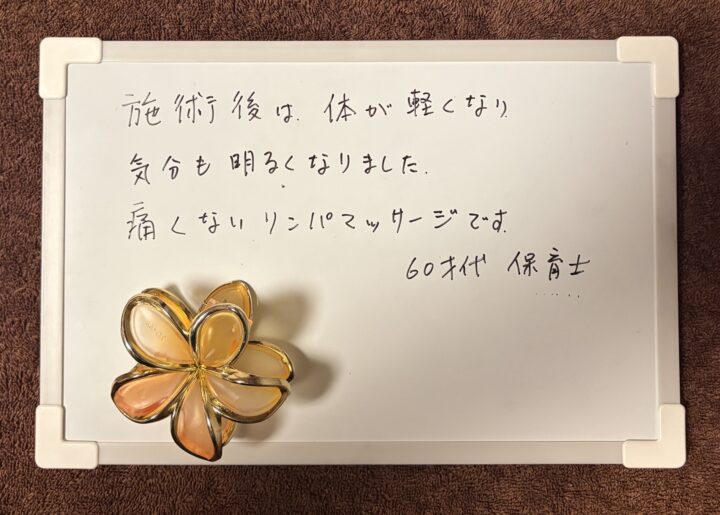 施術後は、体が軽くなり
気分も明るくなりました。
痛くないリンパマッサージです。
60才代 保育士